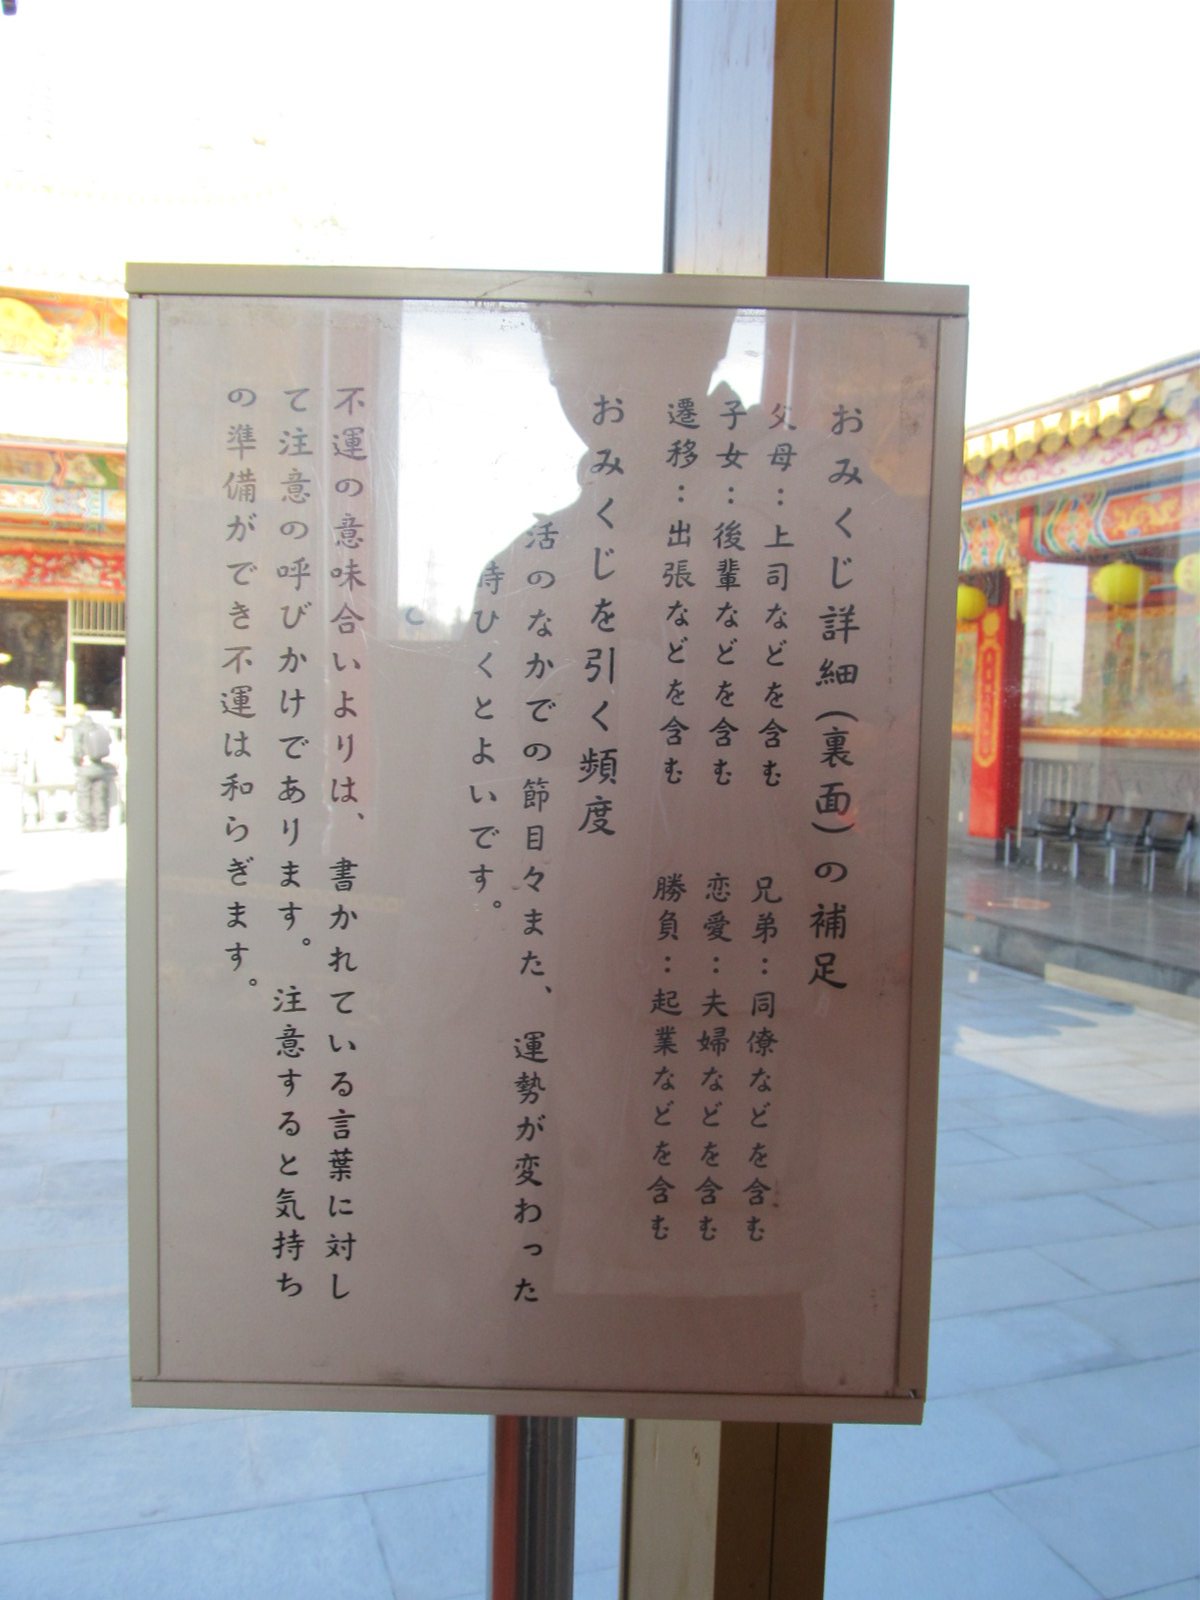 おみくじ詳細（裏面）の補足
父母：上司などを含む　兄弟：同僚などを含む
子女：後輩などを含む　恋愛：夫婦などを含む
遷移：出張などを含む　勝負：起業などを含む
おみくじを引く頻度
活のなかでの節目々また、運勢が変わった
時ひくとよいです。
と
不運の意味合いよりは、書かれている言葉に対し
て注意の呼びかけであります。注意すると気持ち
の準備ができ不運は和らぎます。